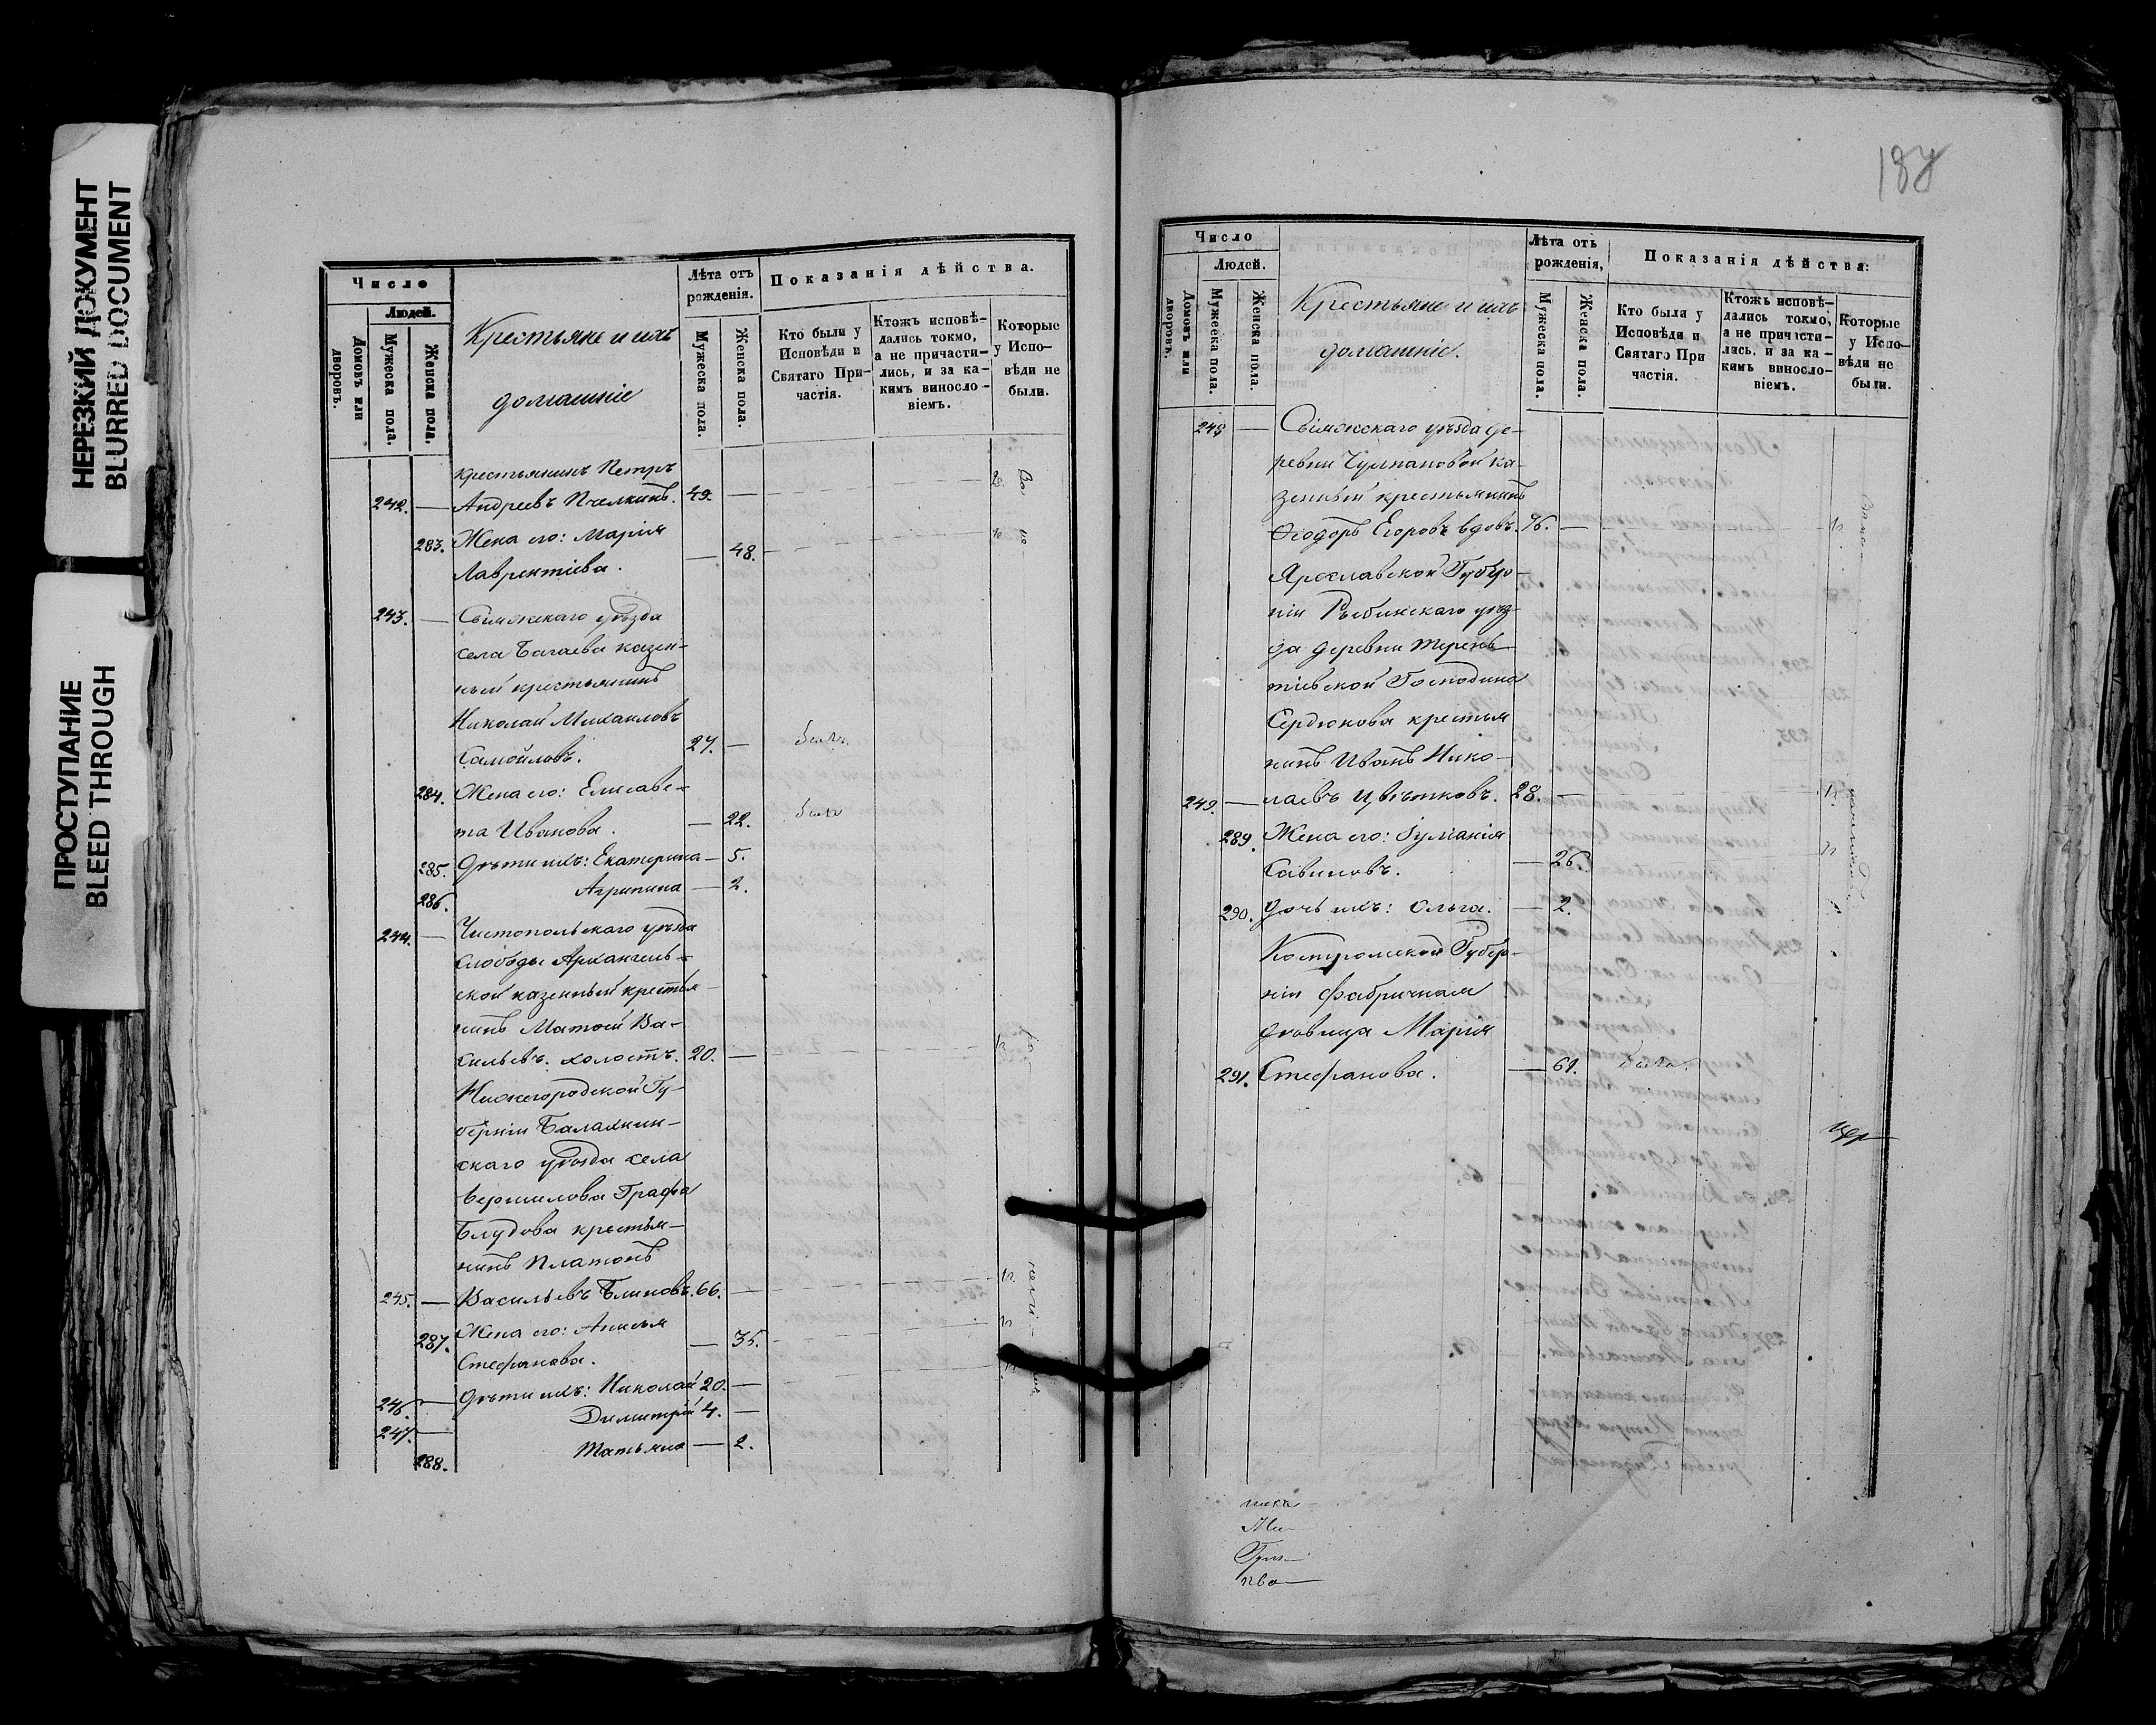 НЕРЕЗКИЙ ДОКУМЕНТ
BLURRED DOCUMENT
ПРОСТУПАНИЕ
BLEED THROUGH
Число
Людей.
Домовъ или дворовъ.
Мужеска пола.
Женска пола.
Крестьяне и ихъ
домашніе
Лѣта отъ
рожденія.
Мужеска пола.
Женска пола.
Показанія дѣйства.
Кто были у
Исповѣди и
Святаго При-
частія.
Ктожъ исповѣ-
дались токмо,
а не причасти-
лись, и за ка-
кимъ винosло-
віемъ.
Которые
у Испо-
вѣди не
были.
крестьянинъ Петръ
242. — Андреевъ Пчелкинъ. 49. —
283. Жена его: Марія
Лаврентіева. — 48.
243. — Свіяжскаго уѣзда
села Багаева казен-
ный крестьянинъ
Николай Михаиловъ
Самойловъ. 27. — былъ.
284. Жена его: Елисаве-
та Иванова. — 22. была
285. Дѣти ихъ: Екатерина — 5.
286. Агрипина — 2.
244. — Чистопольскаго уѣзда
слободы Архангель-
ской казенный крестья-
нинъ Матѳей Ва-
сильевъ. холостъ. 20. —
Нижегородской Гу-
берніи Балахнин-
скаго уѣзда села
Графа
Блудова крестья-
нинъ Платонъ
245. — Васильевъ Блиновъ. 66. —
287. Жена его: Анисья
Стефанова. — 35.
246. — Дѣти ихъ: Николай 20. —
247. — Димитрій 4. —
288. Татьяна — 2.
187
Число
Людей.
Домовъ или дворовъ.
Мужеска пола.
Женска пола.
Крестьяне и ихъ
домашніе.
Лѣта отъ
рожденія,
Мужеска пола.
Женска пола.
Показанія дѣйства:
Кто были у
Исповѣди и
Святаго При
частія.
Ктожъ исповѣ-
дались токмо,
а не причасти-
лись, и за ка-
кимъ винosло-
віемъ.
Которые
у Испо-
вѣди не
были.
248 — Свіяжскаго уѣзда де-
ревни Чулпановой ка-
зенный крестьянинъ
Ѳеодоръ Егоровъ вдовъ. 76. —
Ярославской Губер-
ніи Рыбинскаго уѣз-
да деревни Терень-
тіевской Господина
Сердюкова крестья
нинъ Иванъ Нико-
249. — лаевъ Цвѣтковъ. 28. —
289. Жена его: Іуліанія
Савиновъ. — 26.
290. Дочь ихъ: Ольга. — 2.
Костромской Губер-
ніи фабричная
дѣвица Марія
291. Стефанова. — 61. была.